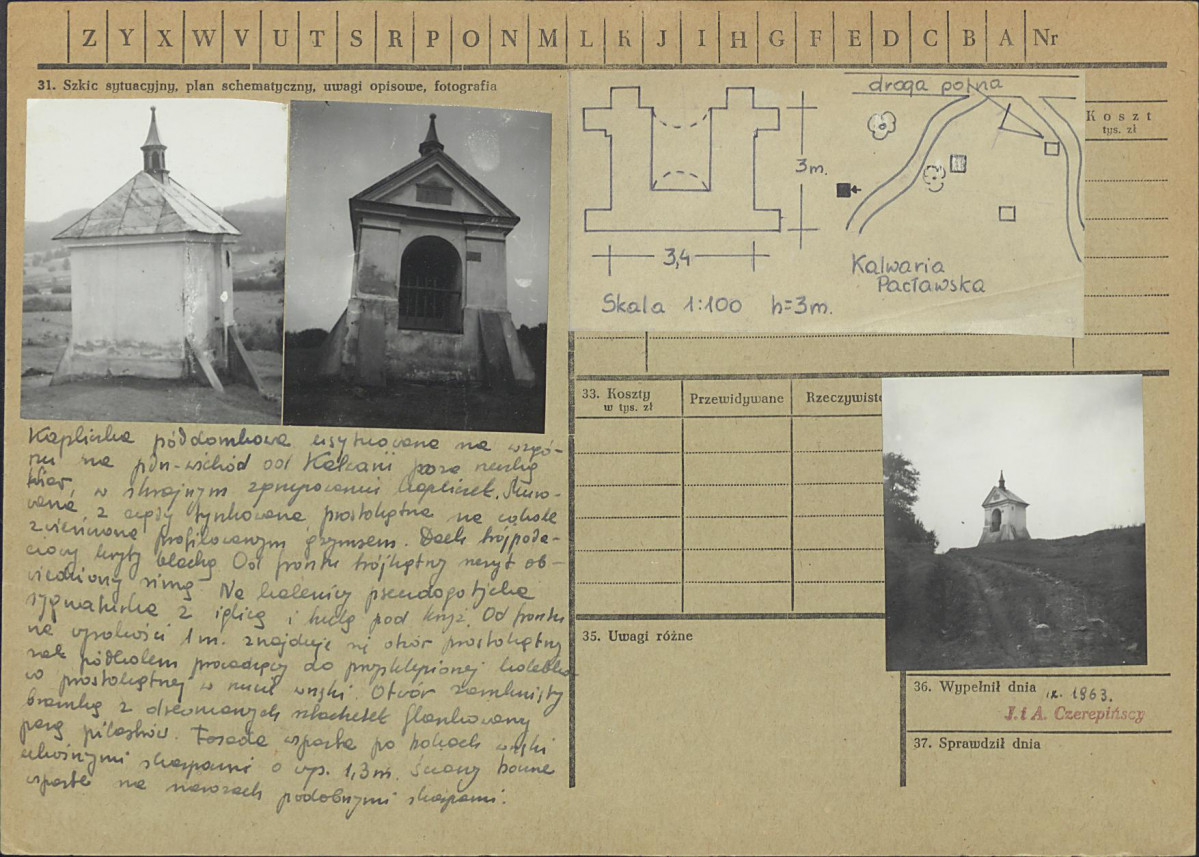 Z Y X W V U T S R P O N M L K J I H G F E D C B A Nr
31. Szkic sytuacyjny, plan schematyczny, uwagi opisowe, fotografia
droga polna
3m.
3,4
Skala 1:100 h=3m.
Kalwaria
Pacławska
Koszt
tys. zł
Kapliczka usytuowana na wzgó-
rzu na płn-wschód od Kalwarii poza
w skrajnym zgrupowaniu kapliczek. Muro-
wana, z cegły tynkowana prostokątna na cokole
zwieńczona profilowanym gzymsem. Dach trójpoła-
ciowy kryty blachą Od frontu trójkątny ob-
Na kalenicy pseudogotycka
sygnaturka z iglicą i kulą pod krzyż. Od frontu
na wysokości 1m. znajduje się otwór prostokątny
półkolem prowadzący do przysklepionej kolebko-
wo prostokątnej w rzucie wnęki. Otwór zamknięty
bramką z drewnianych sztachetek flankowany
parą pilastrów. Fasada wsparta po bokach wnęki
ukośnymi skarpami o wys. 1,3m. Ściany boczne
wsparte na narożach podobnymi skarpami.
33. Koszty
w tys. zł
Przewidywane
Rzeczywiste
35. Uwagi różne
36. Wypełnił dnia IX. 1963.
J. i A. Czerepińscy
37. Sprawdził dnia